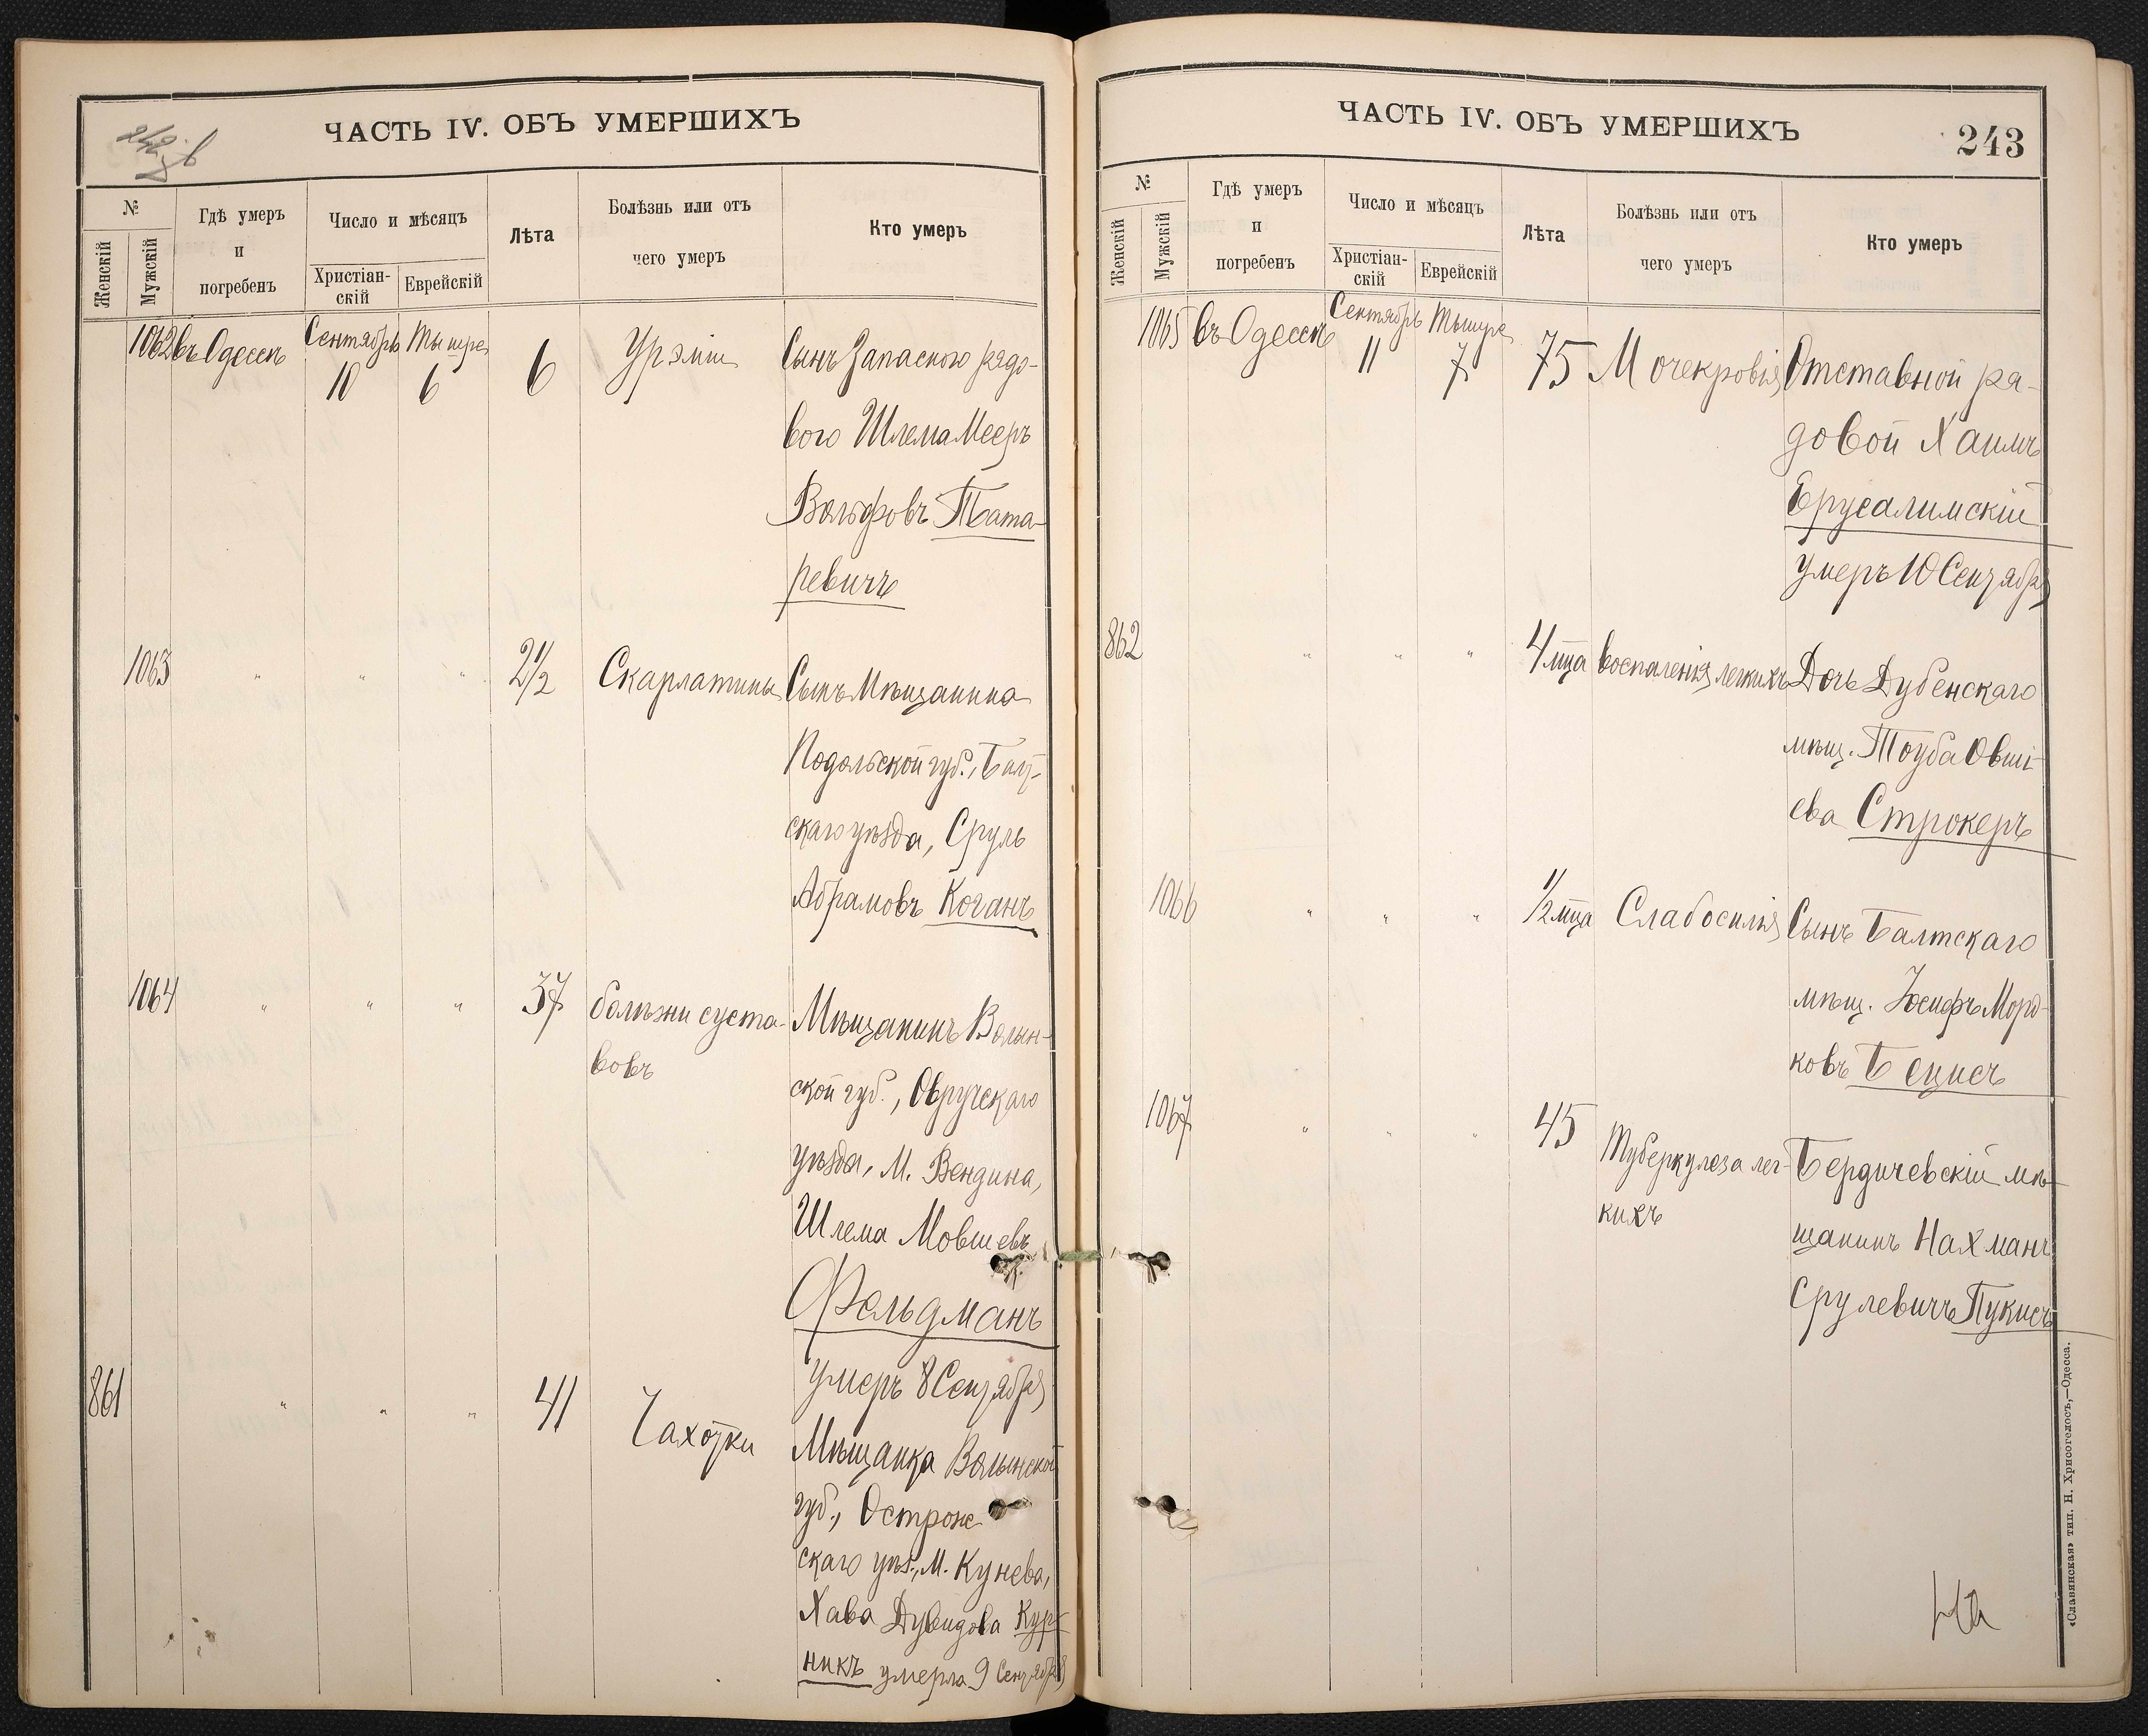 ЧАСТЬ IV. ОБЪ УМЕРШИХЪ
№
Женскій
Мужскій
Гдѣ умеръ
и
погребенъ
Число и мѣсяцъ
Христіан-
скій
Еврейскій
Лѣта
Болѣзнь или отъ
чего умеръ
Кто умеръ
1062 въ Одессѣ Сентябрь 10 Тышре 6 6 Урэміи Сынъ Запасного рядо-
вого Шлема Мееръ
Вольфовъ Тата-
ревичъ
1063 " " " 2 1/2 Скарлатины Сынъ Мѣщанина
Подольской губ., Балт-
скаго уѣзда, Сруль
Абрамовъ Коганъ
1064 " " " 37 болѣзни суста- Мѣщанинъ Волын-
вовъ
ской губ., Овручскаго
уѣзда, М. Вендина,
Шлема Мовшевъ
Фельдманъ
умеръ 8 Сентября
861 " " " 41 Чахотки
Мѣщанка Волынской
губ., Острож
скаго уѣз., М. Кунева,
Хава Дувидова Кур-
никъ умерла 9 Сентября
ЧАСТЬ IV. ОБЪ УМЕРШИХЪ
243
№
Женскій
Мужскій
Гдѣ умеръ
и
погребенъ
Число и мѣсяцъ
Христіан-
скій
Еврейскій
Лѣта
Болѣзнь или отъ
чего умеръ
Кто умеръ
1065 въ Одессѣ Сентябрь 11 Тышре 7 75 Мочекровія Отставной ря-
довой Хаимъ
Ерусалимскій
умеръ 10 Сентября
862 " " " 4 мца воспаленія легкихъ Дочь Дубенскаго
мѣщ. Тоуба Овші-
ева Строкеръ
1066 " " " 1/2 мца Слабосилія Сынъ Балтскаго
мѣщ. Іосифъ Морд-
ковъ Бецисъ
1067 " " " 45 Туберкулеза лег- Бердичевскій мѣ-
кихъ
щанинъ Нахманъ
Срулевичъ Пукисъ
«Славянская» тип. Н. Хрисогелосъ,—Одесса.